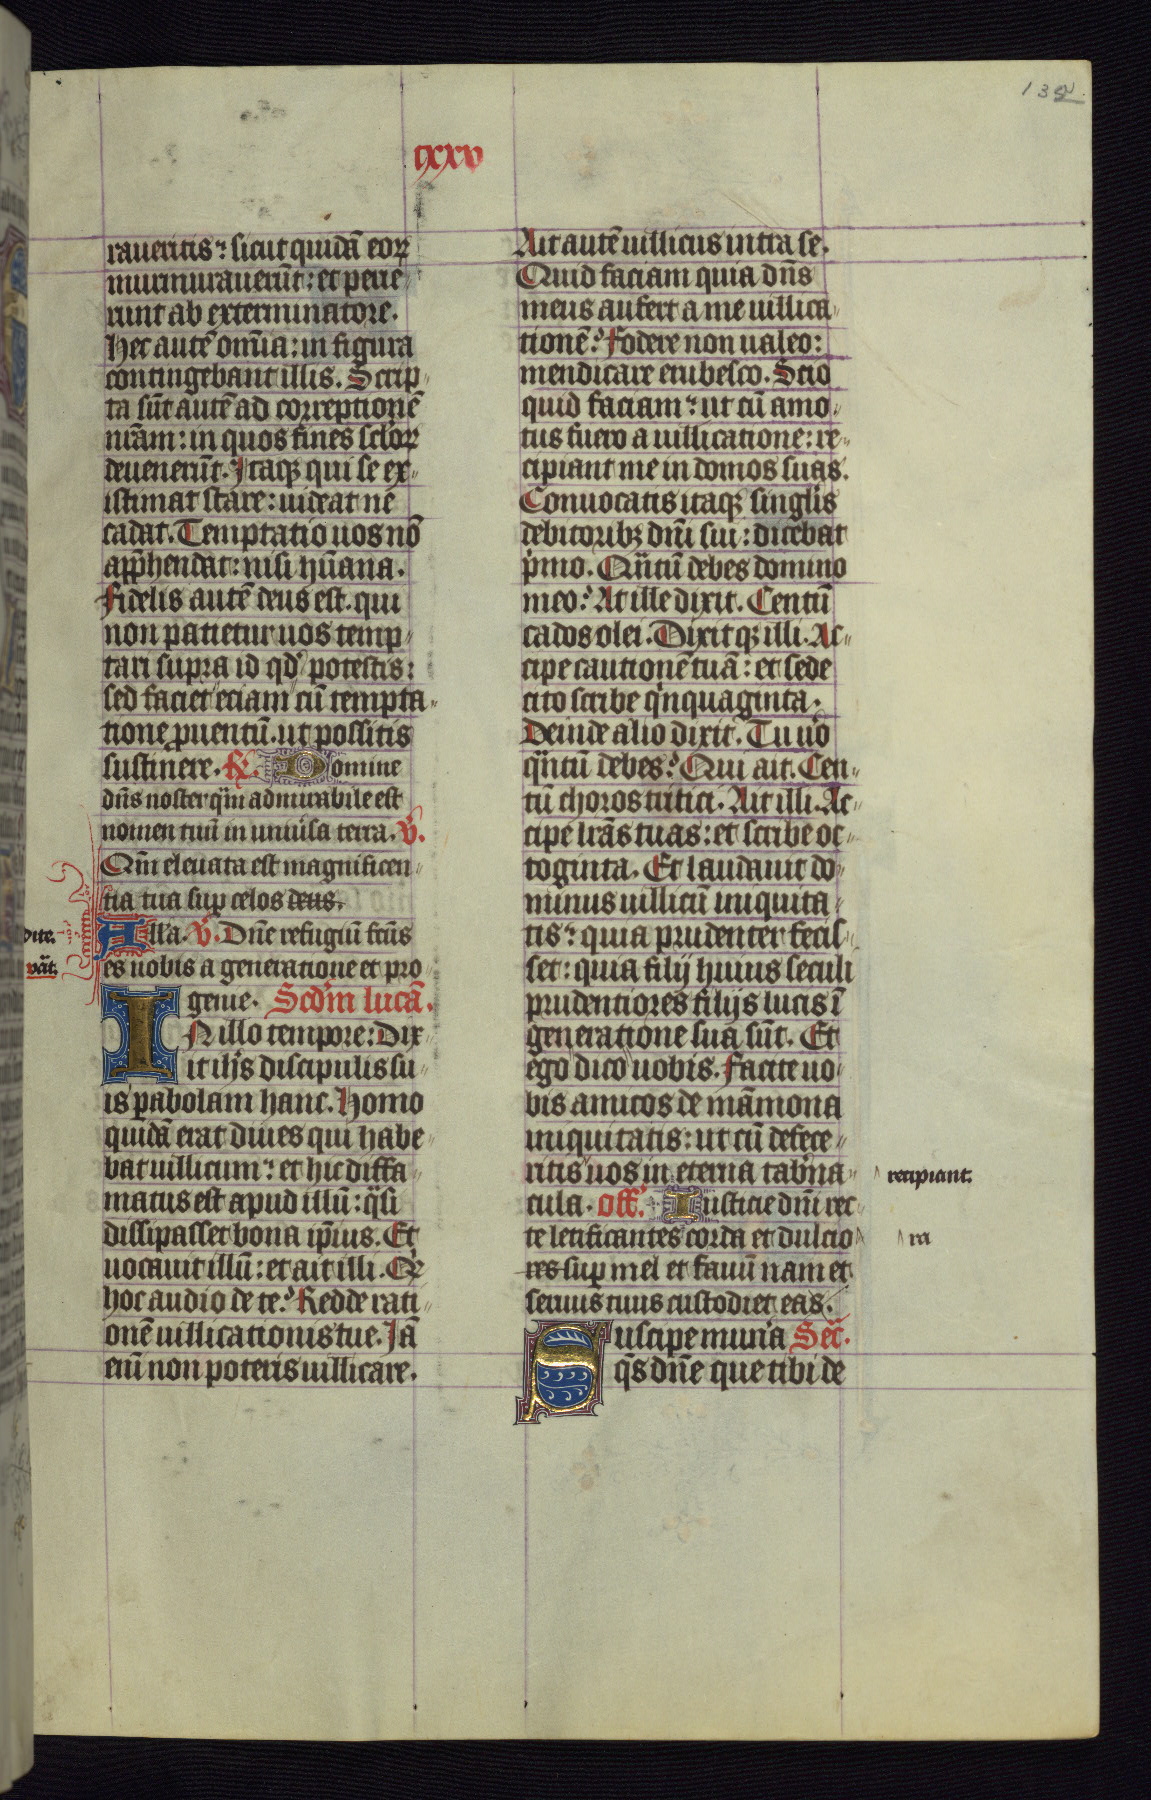 139
cxxv
raueritis: sicut quidā eoꝝ
murmurauerūt: et perie
runt ab exterminatore.
Hec autē omīa: in figura
contingebant illis. Scrip
ta sūt autē ad correptionē
nr̄am: in quos fines sc̄loꝝ
deuenerūt. Itaqꝫ qui se ex
istimat stare: uideat ne
cadat. Temptatio uos nō
app̄hendat: nisi hūana.
Fidelis autē deus est. qui
non patietur uos temp
tari supra id qd̓ potestis:
sed faciet eciam cū tempta
tione ꝓuentū. ut possitis
sustinere. R̷. Domine
dn̄s noster qͣm admirabile est
nomen tuū in uniu̓sa terra. V̓.
Qm̄ eleuata est magnificen
tia tua suꝑ celos deus.
Alla. V̓. Dn̄e refugiū fc̄us
es nobis a generatione et pro
genie. Scd̓m lucā.
IN illo tempore: Dix
it ih̄s discipulis su
is ꝑabolam hanc. Homo
quidā erat diues qui habe
bat uillicum: et hic diffa
matus est apud illū: qͣsi
dissipasset bona ip̄ius. Et
uocauit illū: et ait illi. Qͥꝫ
hoc audio de te? Redde rati
onē uillicationis tue. Iā
enī non poteris uillicare.
Ait autē uillicus intra se.
Quid faciam quia dn̄s
meus aufert a me uillica
tionē? Fodere non ualeo:
mendicare erubesco. Scio
quid faciam: ut cū amo
tus fuero a uillicatione: re
cipiant me in domos suas.
Conuocatis itaqꝫ singl̓is
debitoribꝫ dn̄i sui: dicebat
pͥmo. Qͣntū debes domino
meo? At ille dixit. Centū
cados olei. Dixitqꝫ illi. Ac
cipe cautionē tuā: et sede
cito scribe qͥnquaginta.
Deinde alio dixit. Tu u̓o
qͣntū debes? Qui ait. Cen
tū choros tritici. Ait illi. Ac
cipe lr̄as tuas: et scribe oc
toginta. Et laudauit do
minus uillicū iniquita
tis: quia prudenter fecis
set: quia filij huius seculi
prudentiores filijs lucis ī
generatione sua sūt. Et
ego dico uobis. Facite uo
bis amicos de māmona
iniquitatis: ut cū defece
ritis uos in eterna tab̓na
recipiant.
cula. Off. Iusticie dn̄i rec
te letificantes corda et dulcio
ra
res suꝑ mel et fauū nam et
seruus tuus custodiet eas.
Suscipe mun̓a Sec̄.
qͥs dn̄e que tibi de